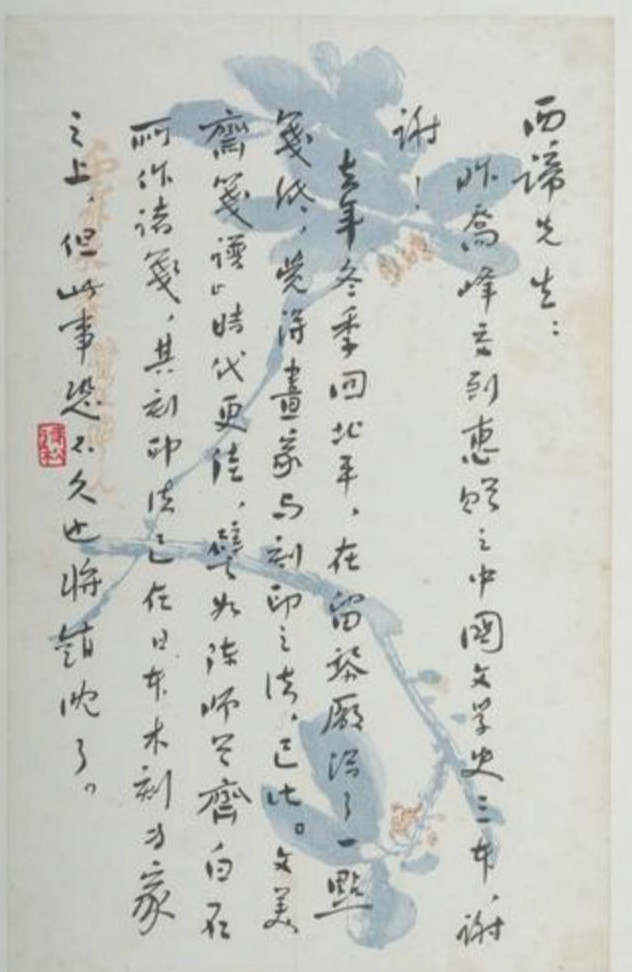 西諦先生：
昨喬峰交到惠贈之中國文學史三本，謝
謝！
去年冬季回北平，在留黎厰得了一點
箋紙，覺得畫家与刻印之法，已比「文美
齋箋譜」時代更佳，譬如陳師曾齊白石
所作諸箋，其刻印法已在日本木刻专家
之上，但此事恐不久也將銷沈了。